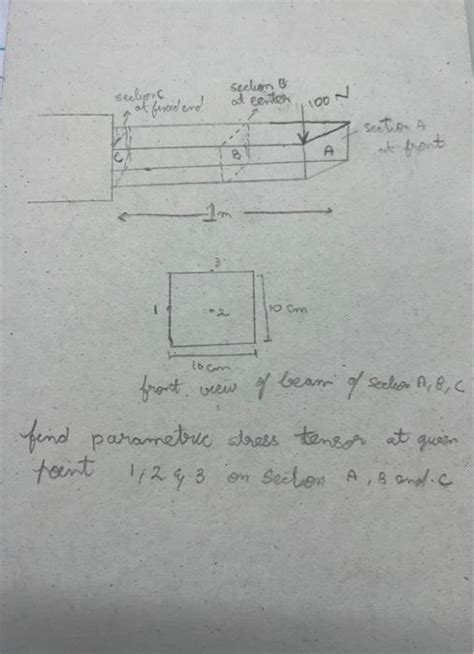 section C
at fixed end
section B
at center
100 N
section A
at front
C
B
A
1m
3
1
2
10 cm
10 cm
front view of beam of section A, B, C
find parametric stress tensor at given
point 1, 2 & 3 on section A, B and C